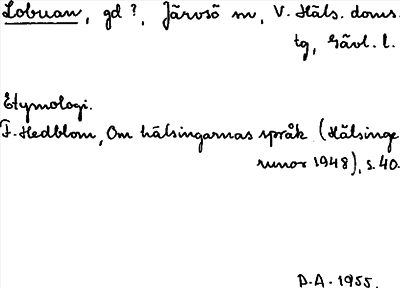 Lobuan, gd ?, Järvsö sn, V. Häls. doms.
tg, Gävl. l.
Etymologi.
F. Hedblom, Om hälsingarnas språk (Hälsinge
runor 1948), s. 40.
D.A. 1955.